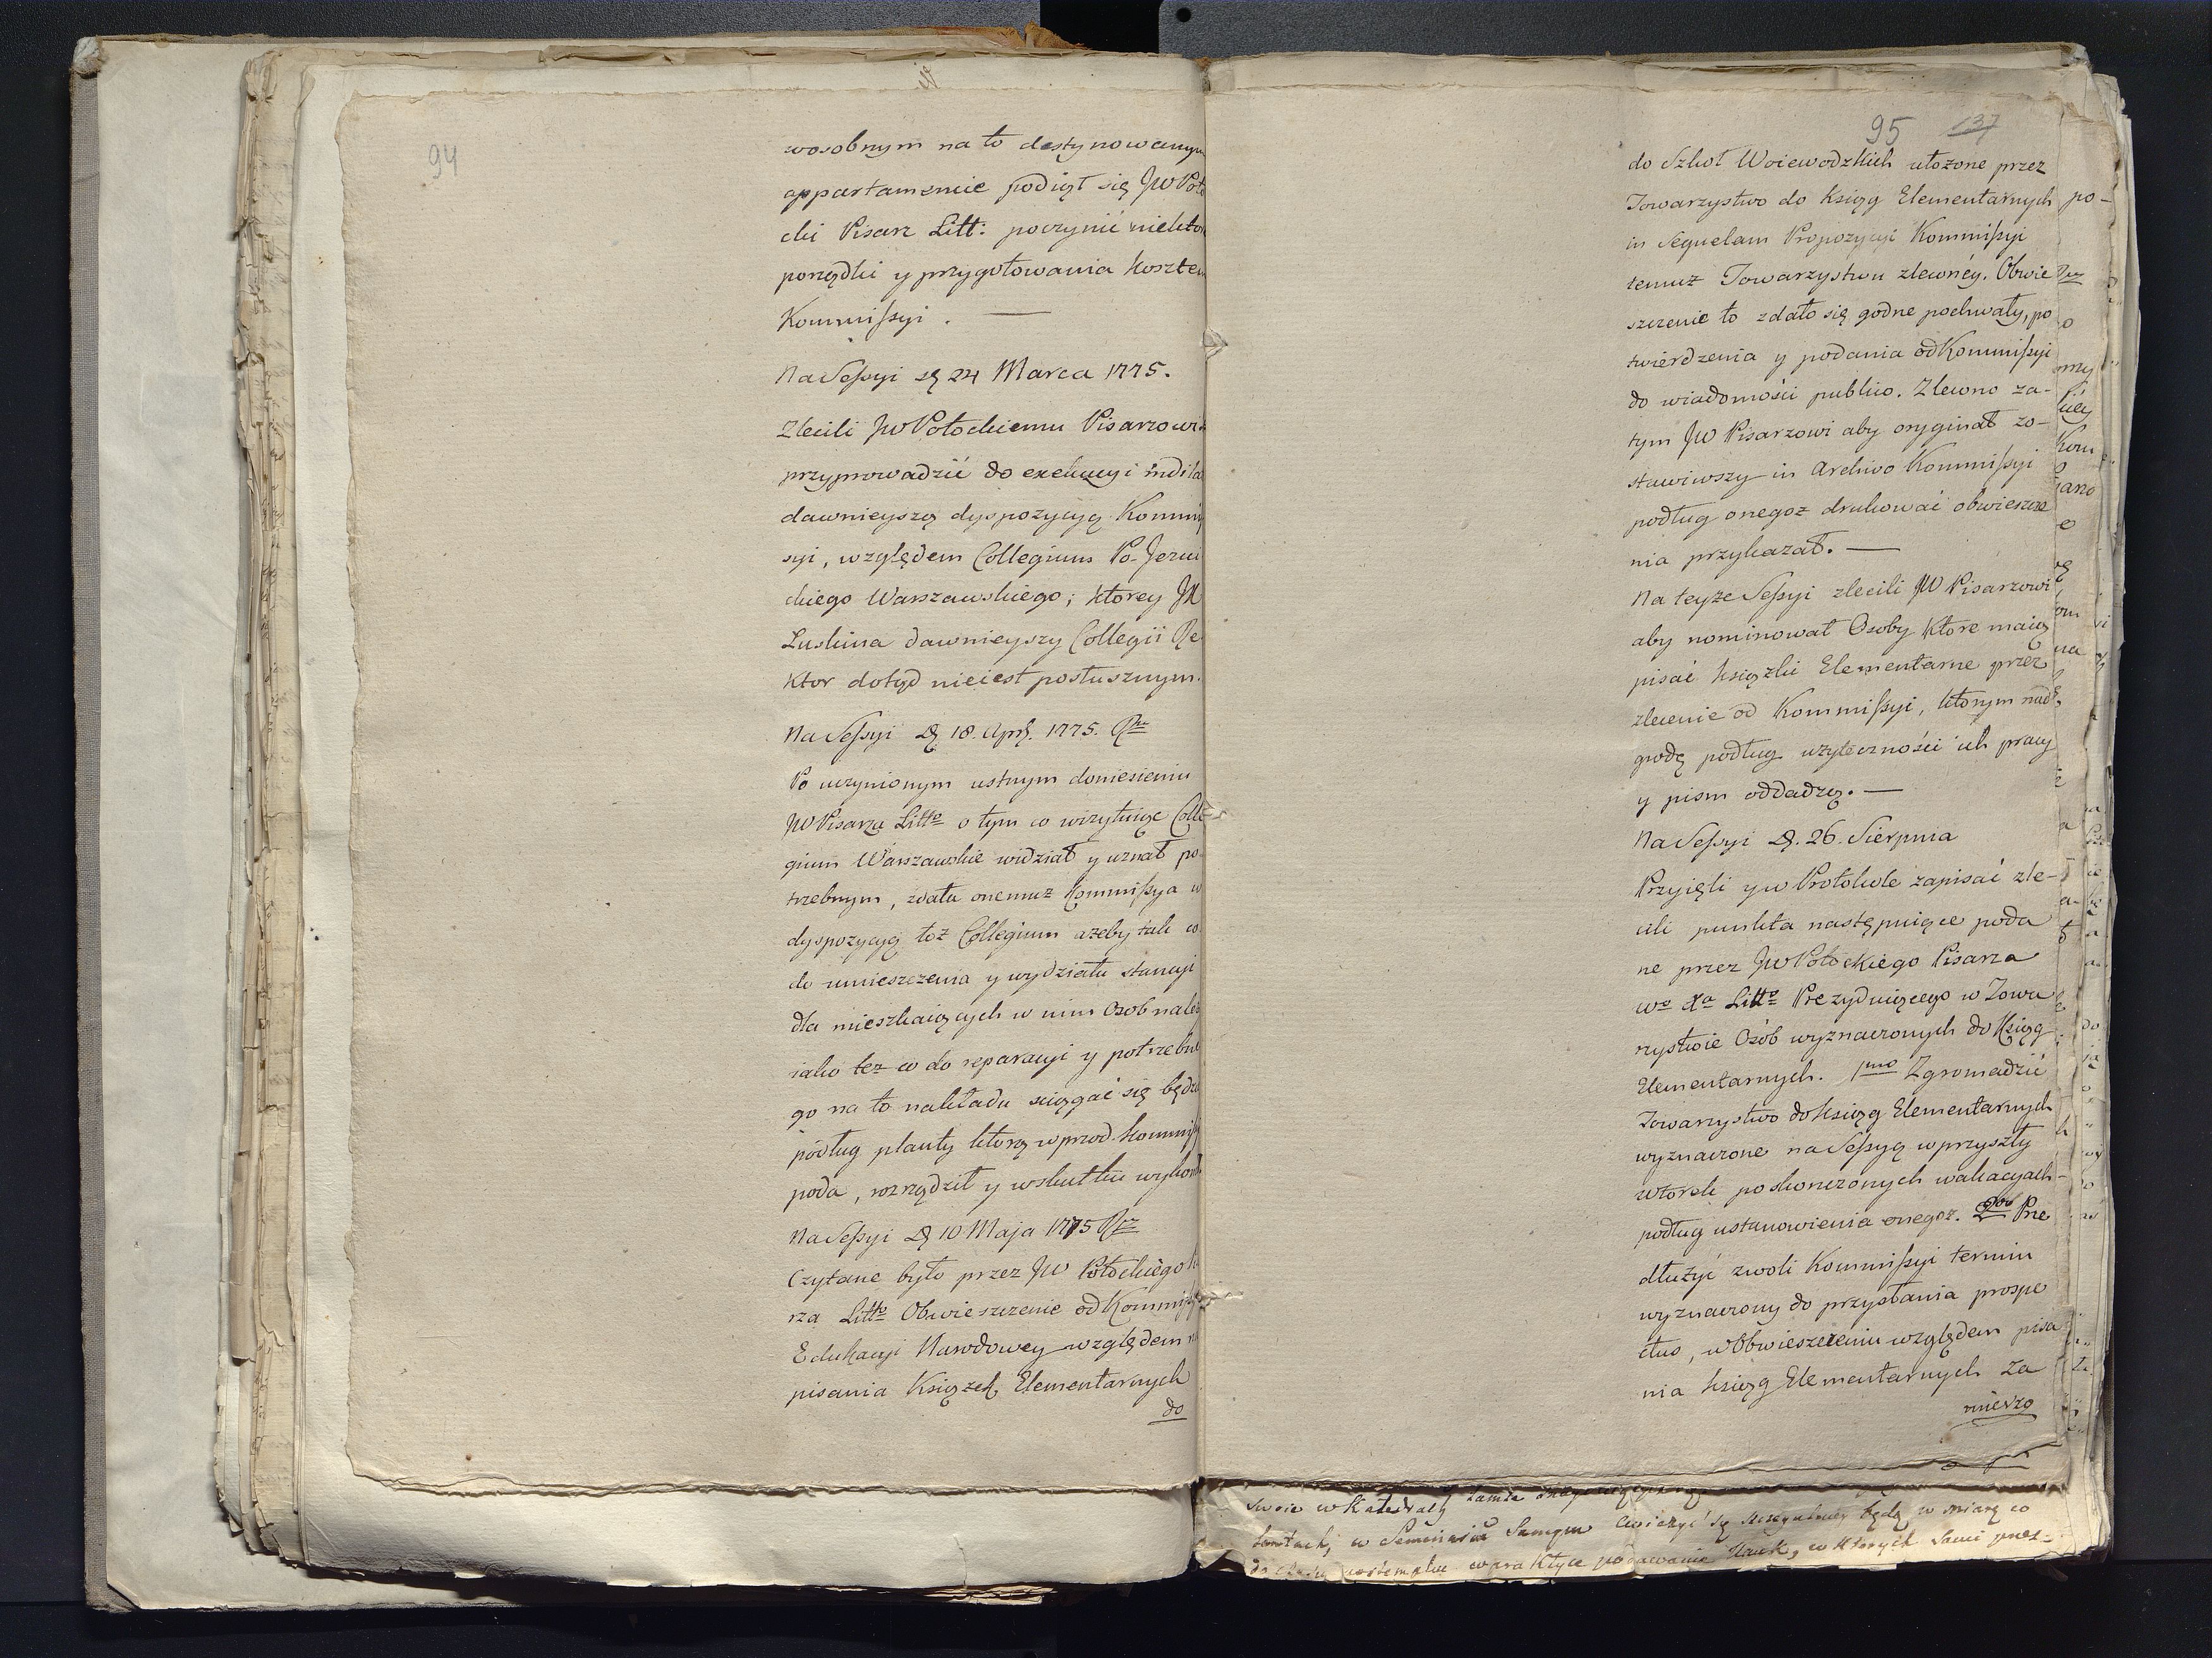 94
wosobnym na to destynowanym
appartamencie podiął się JW Poto
cki Pisarz Litt: poczynić niektor
porządki y przygotowania koszte
Kommissyi. —
Na Sessyi 24 Marca 1775.
Zlecili JW Potockiemu Pisarzowi
przyprowadzić do exekucyi
dawnieyszą dyspozycyą Kommis
syi, względem Collegium Po-Jezui
ckiego Warszawskiego; ktorey JX
Luskina dawnieyszy Collegii Re
ktor dotąd nieiest posłusznym.
Na Sessyi 18. Apr. 1775.
Po uczynionym ustnym doniesieniu
JW Pisarza Litto o tym co wizytuiąc Colle
gium Warszawskie widział y uznał po
trzebnym, zdała onemuz Kommissya w
dyspozycyą toż Collegium azeby tak co
do umieszczenia y wydziału stancyi
dla mieszkaiących w nim Osob nale
iako tez co do reparacyi y potrzebne
go na to nakładu sciągać się będz
podług planty ktorą wprzod Kommiss
poda, rozrządził y wskutku wykon
Na Sessyi 10 Maja 1775
Czytane było przez JW Potockiego
rza Litto Obwieszczenie od Kommis
Edukacyi Narodowey względem
pisania Książek Elementarnych
do
95 137
do Szkoł Woiewodzkich ułożone przez
Towarzystwo do Ksiąg Elementarnych
in Sequelam Propozycyi Kommissyi
temuz Towarzystwu zleconey. Obwie
szczenie to zdało się godne pochwały, po
twierdzenia y podania od Kommissyi
do wiadomości publico. Zlecono za-
tym JW Pisarzowi aby oryginał zo-
stawiwszy in Archivo Kommissyi
podług onegoz drukować obwieszcze
nia przykazał. —
Na teyze Sessyi zlecili JW Pisarzowi
aby nominował Osoby ktore maią
pisać książki Elementarne przez
zlecenie od Kommissyi, ktorym nad
grodę podług uzyteczności ich pracy
y pism oddadzą. —
Na Sessyi 26. Sierpnia
Przyięli y w Protokole zapisać zle-
cili punkta następuiące poda
ne przez JW Potockiego Pisarza
Wo Xa Litto Prezyduiącego w Towa
rzystwie Osób wyznaczonych do Ksiąg
Elementarnych. 1mo Zgromadzić
Towarzystwo do ksiąg Elementarnych
wyznaczone na Sessyą w przyszły
wtorek po skonczonych wakacyach
podług ustanowienia onegoz. 2do Prze
dłużyć zwoli Kommissyi termin
wyznaczony do przysłania prospe
ctus, w Obwieszczeniu względem pisa
nia ksiąg Elementarnych za
mierzo
swoie w Katedrach tamże
w Seminariis Samym cwiczyć się będą, w miarę co
w praktyce podawania Nauk, w ktorych sami